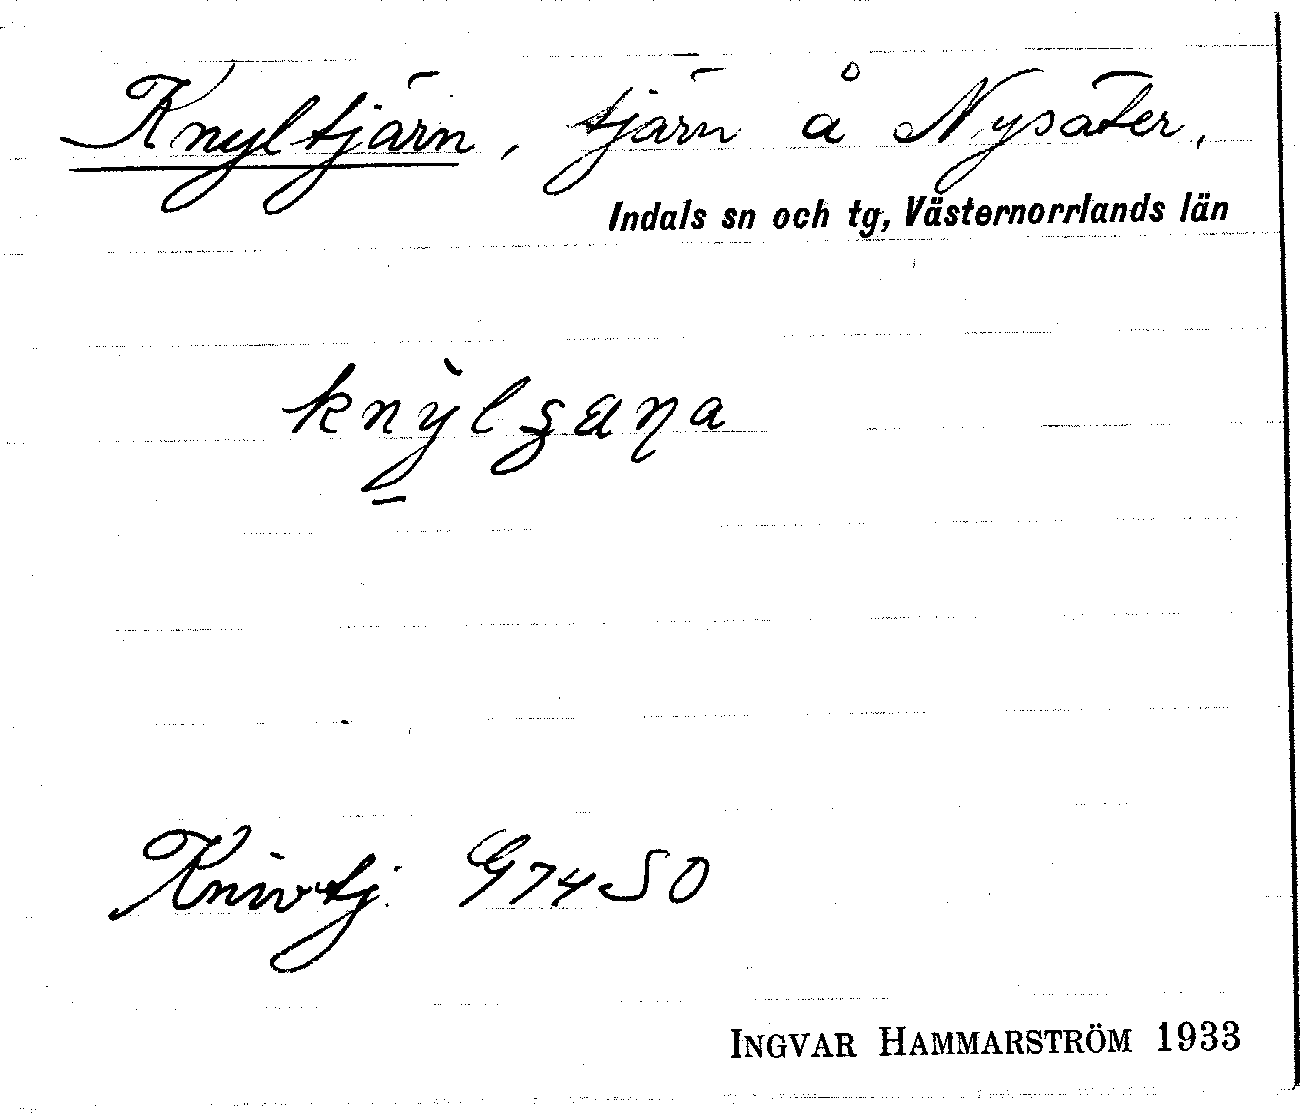 Knyltjärn, tjärn å Nysäter,
Indals sn och tg, Västernorrlands län
Knivtj. G74SO
INGVAR HAMMARSTRÖM 1933